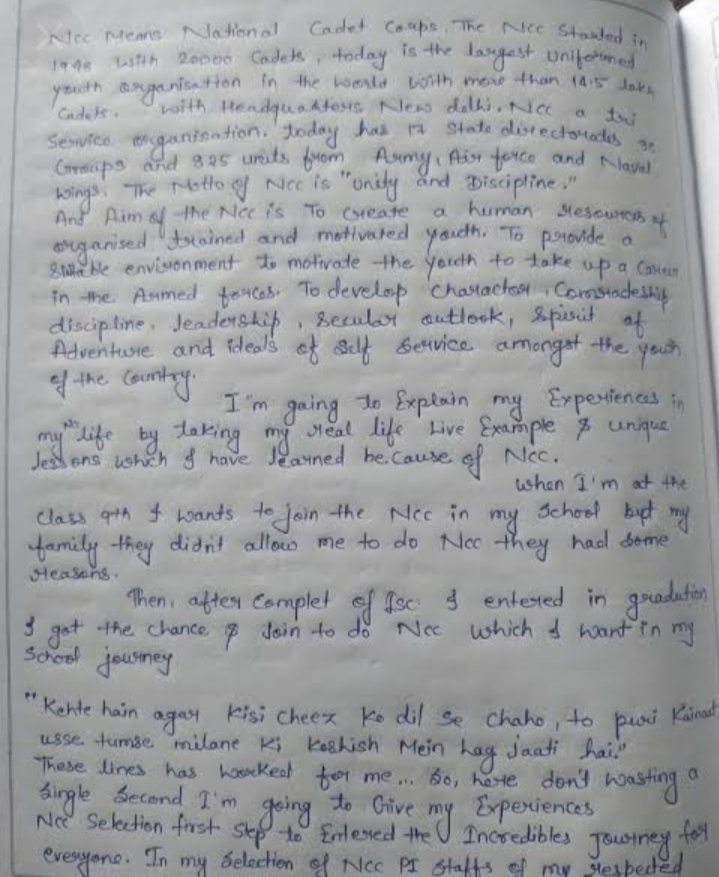 Ncc Means National Cadet Coups. The Ncc Started in
1948 With 20000 Cadets, today is the largest uniformed
youth organisation in the world with more than 14.5 lakh
Cadets. with Headquarters New delhi. Ncc a tri
Service organisation. today has 17 State directorates
Groups and 825 units from Army, Air force and Naval
wings. The Motto of Ncc is "unity and Discipline."
And Aim of the Ncc is To Create a human resources of
organised trained and motivated youth. To provide a
Suitable environment to motivate the youth to take up a Career
in the Armed forces. To develop character, Comradeship
discipline, leadership, secular outlook, spirit of
Adventure and ideals of Self Service amongst the youth
of the Country.
I'm going to Explain my Experiences in
my Ncc life by taking my real life Live Example & unique
lessons which I have learned because of Ncc.
when I'm at the
Class 9th I wants to join the Ncc in my School but my
family they didn't allow me to do Ncc they had some
reasons.
Then, after Complet of Isc I entered in gradution
I got the chance & Join to do Ncc which I want in my
School journey
"Kehte hain agar Kisi Cheez Ko dil Se Chaho, to puri Kainaat
usse tumse milane Ki Koshish Mein Lag Jaati hai."
These lines has worked for me... So, here don't wasting a
Single Second I'm going to Give my Experiences
Ncc Selection first Step to Entered the Incredibles Journey for
everyone. In my Selection of Ncc PI Staffs of my respected